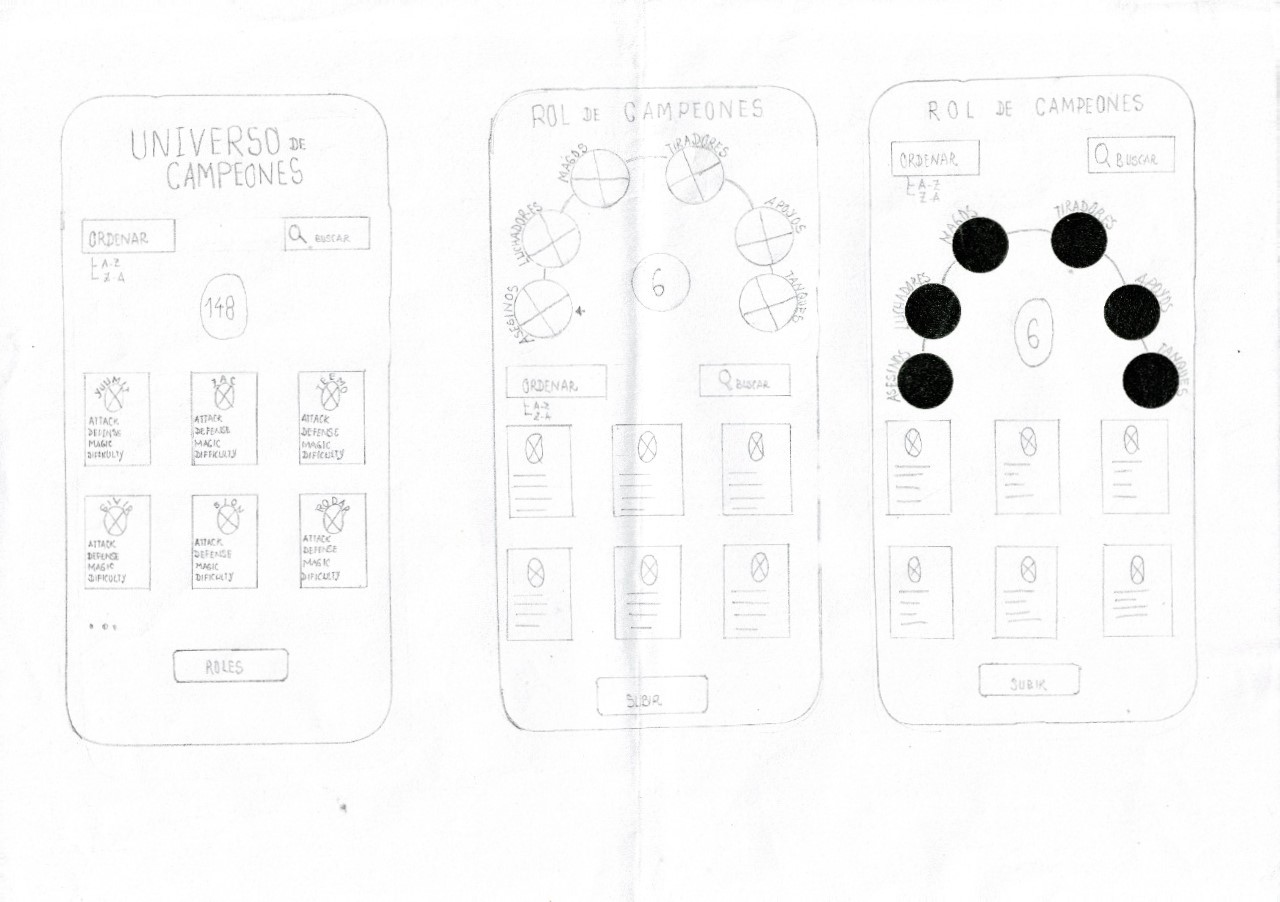 UNIVERSO DE
CAMPEONES
ORDENAR
A-Z
Z-A
BUSCAR
148
ATTACK
DEFENSE
MAGIC
DIFICULTY
ZAC
ATTACK
DEFENSE
MAGIC
DIFFICULTY
TEEMO
ATTACK
DEFENSE
MAGIC
DIFFICULTY
ATTACK
DEFENSE
MAGIC
DIFICULTY
ATTACK
DEFENSE
MAGIC
DIFICULTY
ATTACK
DEFENSE
MAGIC
DIFICULTY
ROLES
ROL DE CAMPEONES
ASESINOS
LUCHADORES
MAGOS
TIRADORES
APOYOS
TANQUES
6
ORDENAR
A-Z
Z-A
BUSCAR
SUBIR
ROL DE CAMPEONES
ORDENAR
A-Z
Z-A
BUSCAR
ASESINOS
LUCHADORES
MAGOS
TIRADORES
APOYOS
TANQUES
6
SUBIR